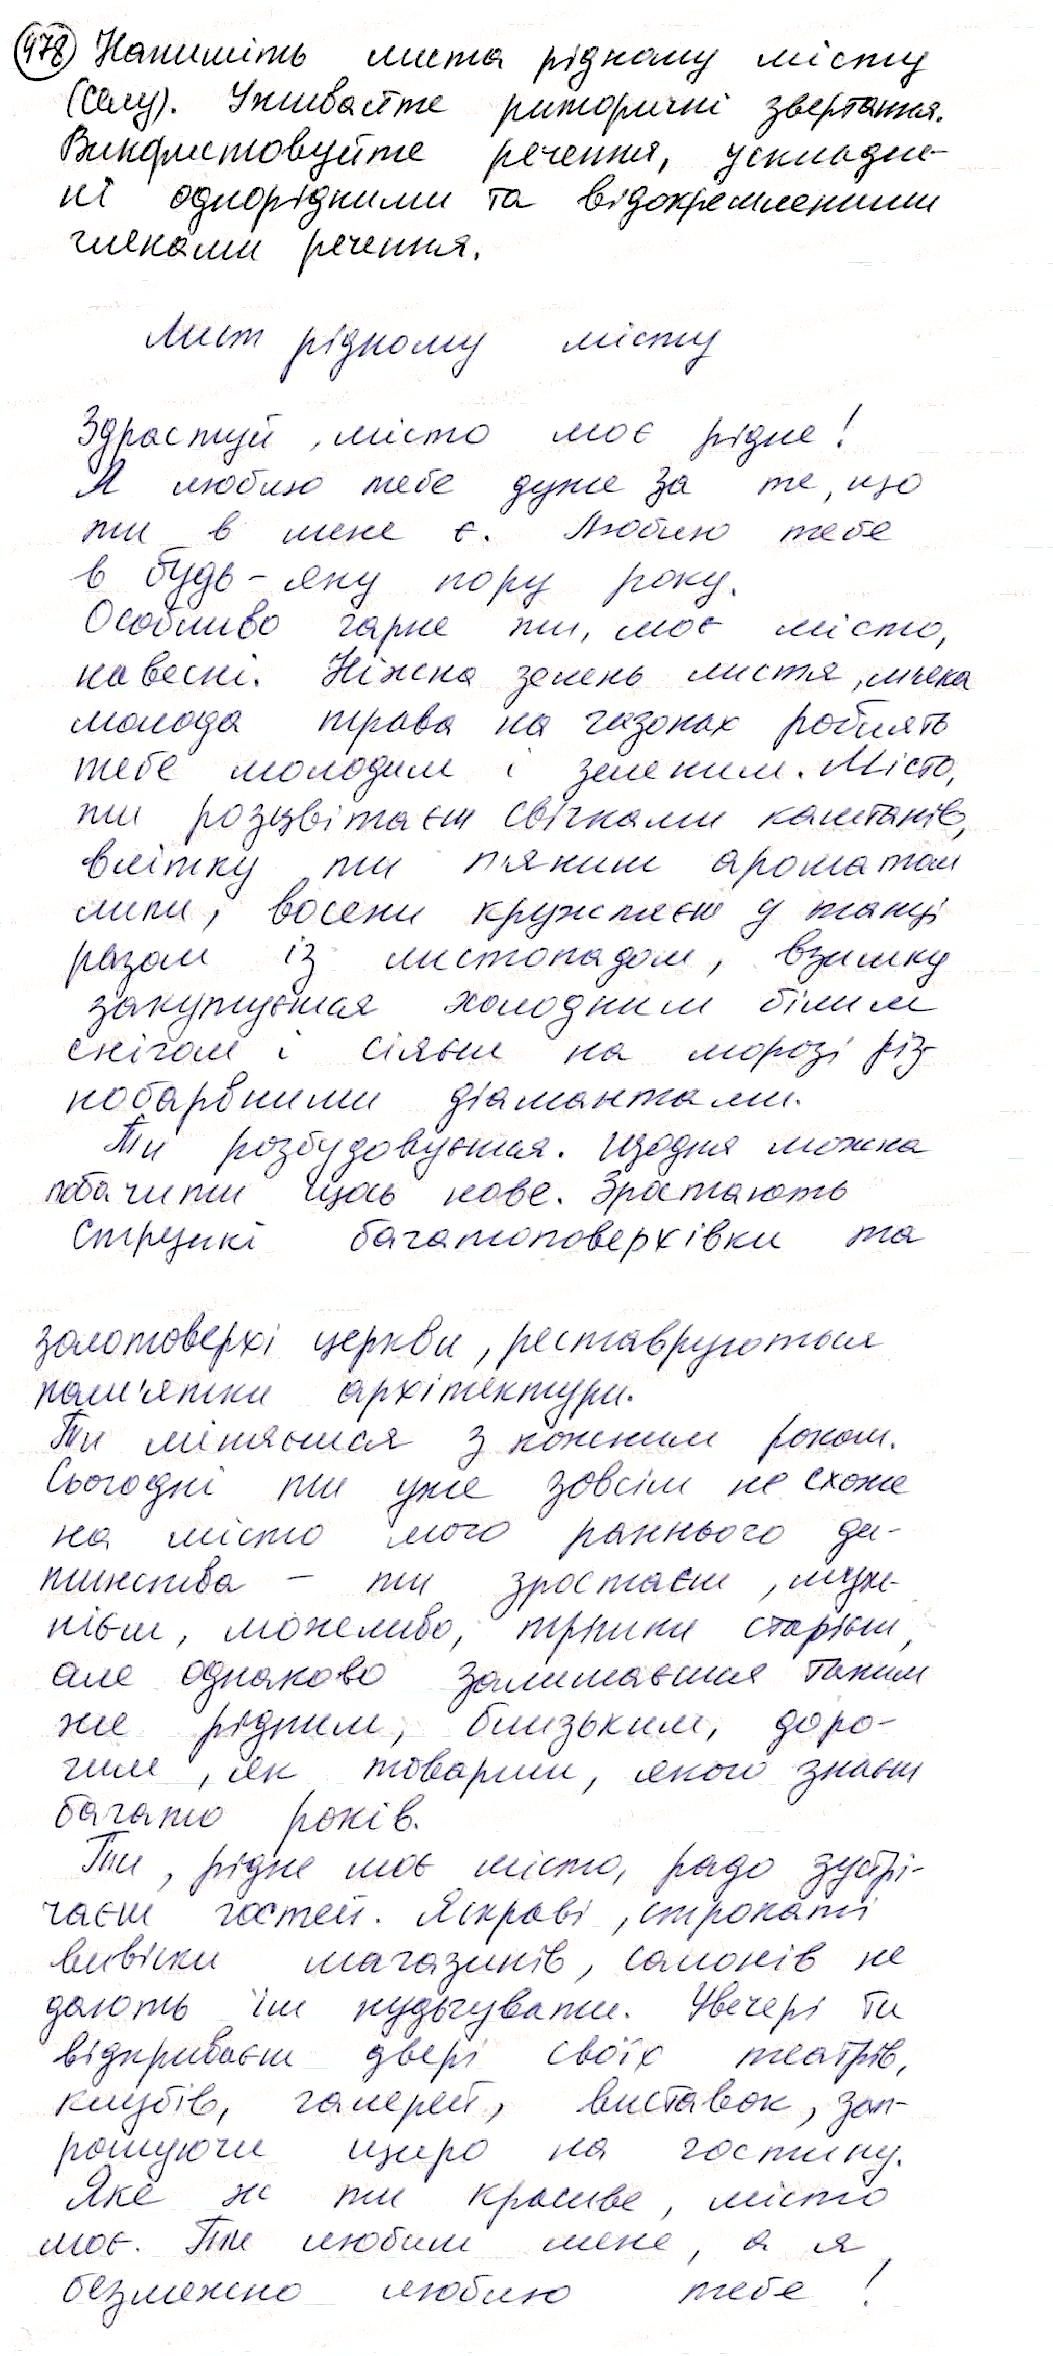 478 Напишіть листа рідному місту
(селу). Уживайте риторичні звертання.
Використовуйте речення, ускладне-
ні однорідними та відокремленими
членами речення.
Лист рідному місту
Здрастуй, місто моє рідне!
Я люблю тебе дуже за те, що
ти в мене є. Люблю тебе
в будь-яку пору року.
Особливо гарне ти, моє місто,
навесні. Ніжна зелень листя, м'яка
молода трава на газонах роблять
тебе молодим і зеленим. Місто,
ти розцвітаєш свічками каштанів,
влітку ти п'яниш ароматом
липи, восени кружляєш у танці
разом із листопадом, взимку
закутуєшся холодним білим
снігом і сіяєш на морозі різ-
нобарвними діамантами.
Ти розбудовуєшся. Щодня можна
побачити щось нове. Зростають
стрункі багатоповерхівки та
золотоверхі церкви, реставруються
пам'ятки архітектури.
Ти міняєшся з кожним роком.
Сьогодні ти уже зовсім не схоже
на місто мого раннього ди-
тинства – ти зростаєш, муж-
нієш, можливо, трішки старієш,
але однаково залишаєшся таким
же рідним, близьким, доро-
гим, як товариш, якого знаєш
багато років.
Ти, рідне моє місто, радо зустрі-
чаєш гостей. Яскраві, строкаті
вивіски магазинів, салонів не
дають їм нудьгувати. Увечері ти
відкриваєш двері своїх театрів,
клубів, галерей, виставок, зап-
рошуючи щиро на гостину.
Яке ж ти красиве, місто
моє. Ти любиш мене, а я
безмежно люблю тебе!